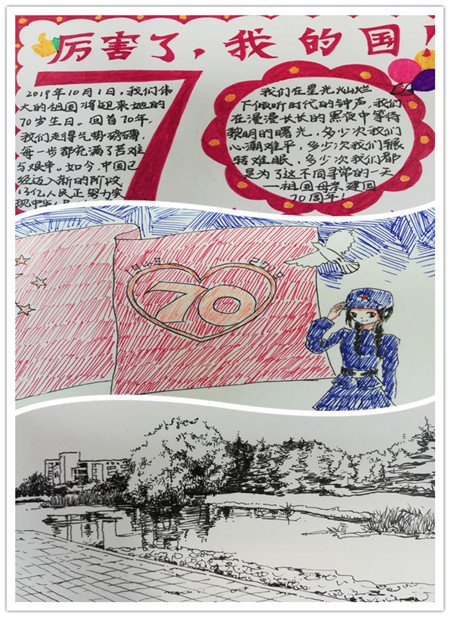 厉害了,我的国!
70
2019年10月1日,我们伟
大的祖国将迎来她的
70岁生日。回首70年,
我们走得气势磅礴,
每一步都充满了苦难
与艰辛。如今,中国已
经迈入新的阶段,
13亿人民正努力实
现中
我们在星光灿烂
下倾听时代的钟声,我们
在漫漫长长的黑夜中等待
黎明的曙光,多少次我们
心潮难平,多少次我们辗
转难眠,多少次我们都
是为了这不同寻常的一天
——祖国母亲建国
70周年!
1949 2019
70